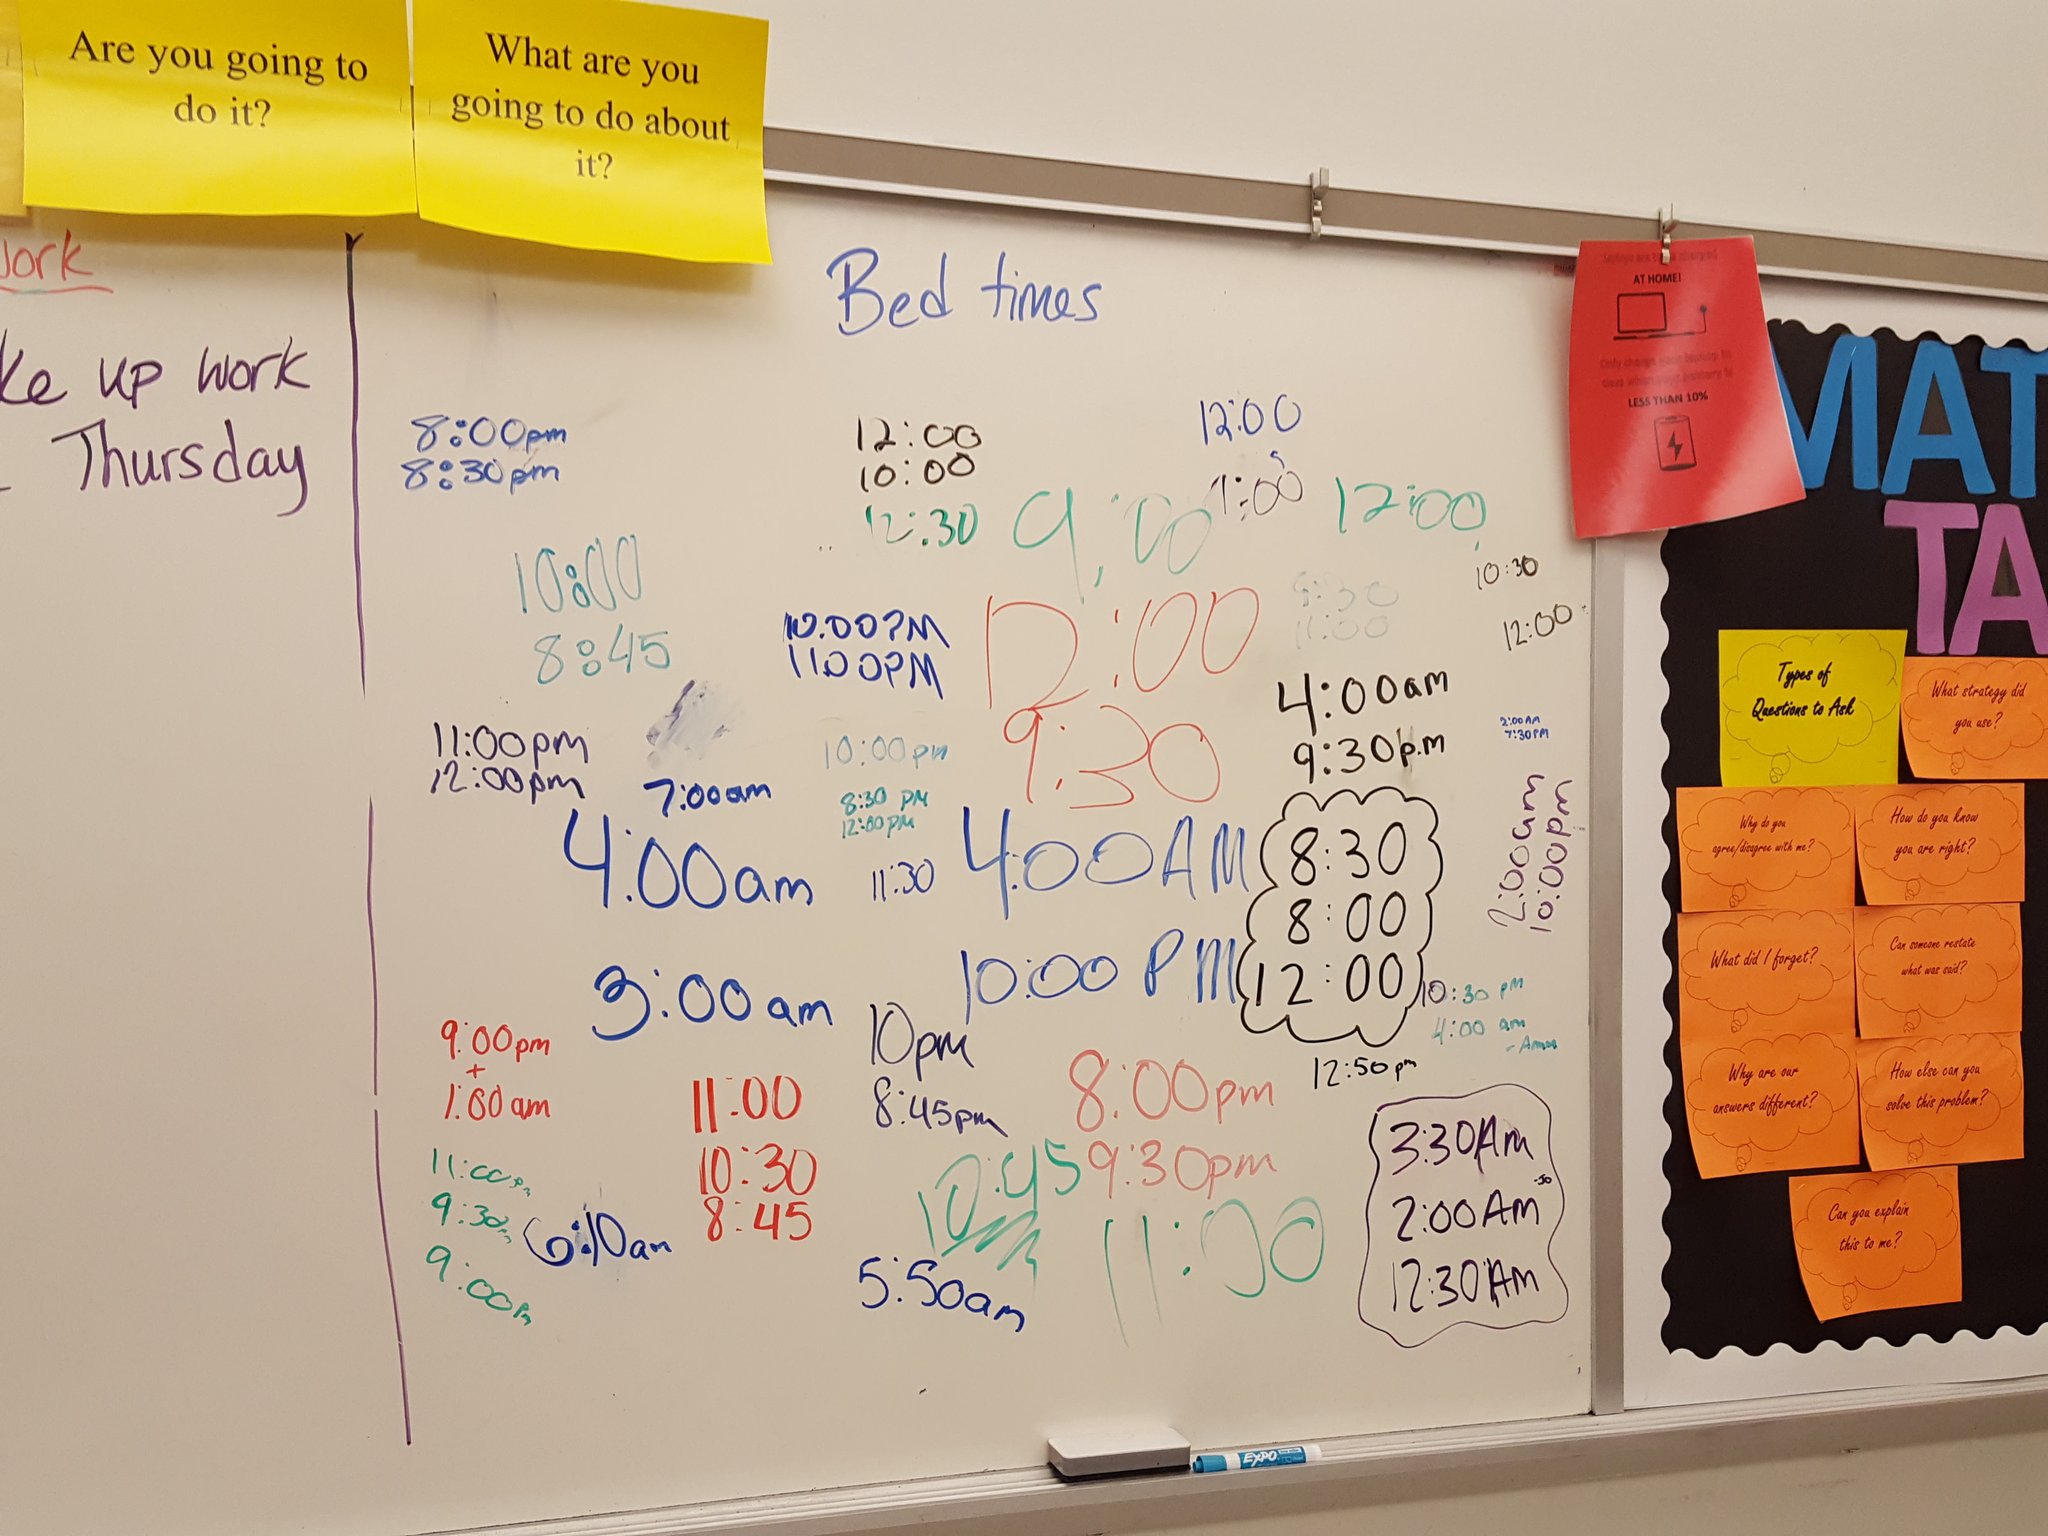 Are you going to
do it?
What are you
going to do about
it?
up work
Thursday
Bed times
8:00pm
8:30pm
12:00
10:00
12:30
12:00
1:00
9:00
12:00
10:30
12:00
10:00
8:45
10:00PM
11:00PM
12:00
9:30
11:00
4:00am
9:30p.m
2:00AM
7:30PM
11:00pm
12:00pm
7:00am
10:00pm
8:30 PM
12:00PM
4:00am
11:30
4:00AM
8:30
8:00
12:00
2:00am
10:00pm
3:00am
10:00 PM
10:30 pm
4:00 am
9:00pm
+
1:00am
11:00
10:30
8:45
10pm
8:45pm
8:00pm
9:30pm
12:50pm
11:00pm
9:30pm
9:00pm
6:10am
10:45
5:50am
11:00
3:30Am
-Jo
2:00Am
12:30Am
AT HOME!
LESS THAN 10%
MAT
TA
Types of
Questions to Ask
What strategy did
you use?
Why do you
agree/disagree with me?
How do you know
you are right?
What did I forget?
Can someone restate
what was said?
Why are our
answers different?
How else can you
solve this problem?
Can you explain
this to me?
EXPO